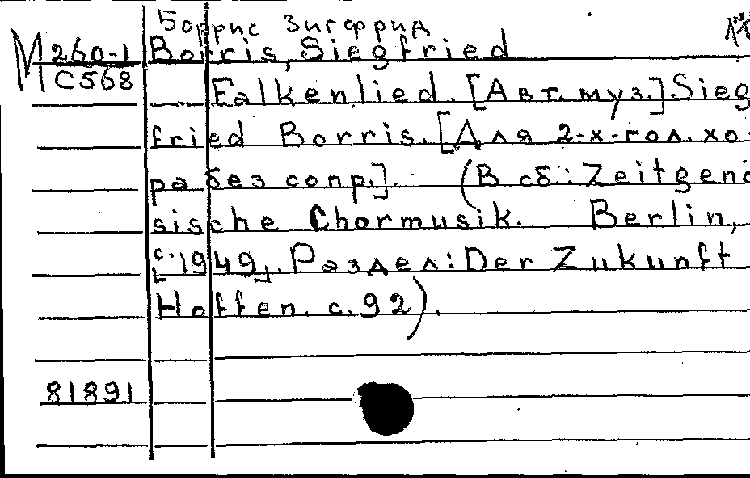 Боррис Зигфрид
М 260-1 Borris, Siegfried
С568
Falkenlied. [Авт. муз.] Sieg
fried Borris. [Для 2-х-гол. хо-
ра без сопр.]. (В сб: Zeitgenö
sische Chormusik. Berlin,
[с. 1949]. Раздел: Der Zukunft
Hoffen. с. 92).
81891